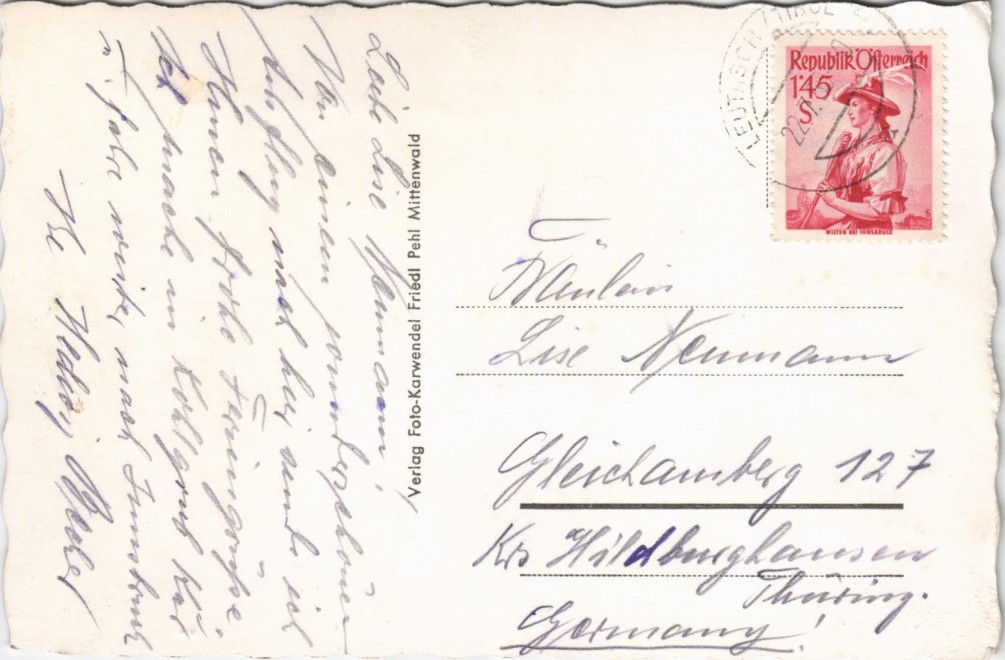 Liebe Lise Neumann!
Von einem wunderschönen
Ausflug nach hier sende ich
Ihnen frohe Feriengrüße.
Ich mache in Kohlgrub Kur
u. fahre weiter nach Innsbruck
Ihr
Verlag Foto-Karwendel Friedl Pehl Mittenwald
LEUTASCH / TIROL
22.
Republik Österreich
1'45
S
WILTEN BEI INNSBRUCK
Fräulein
Lise Neumann
Gleichamberg 127
Krs Hildburghausen
Thüring.
Germany!